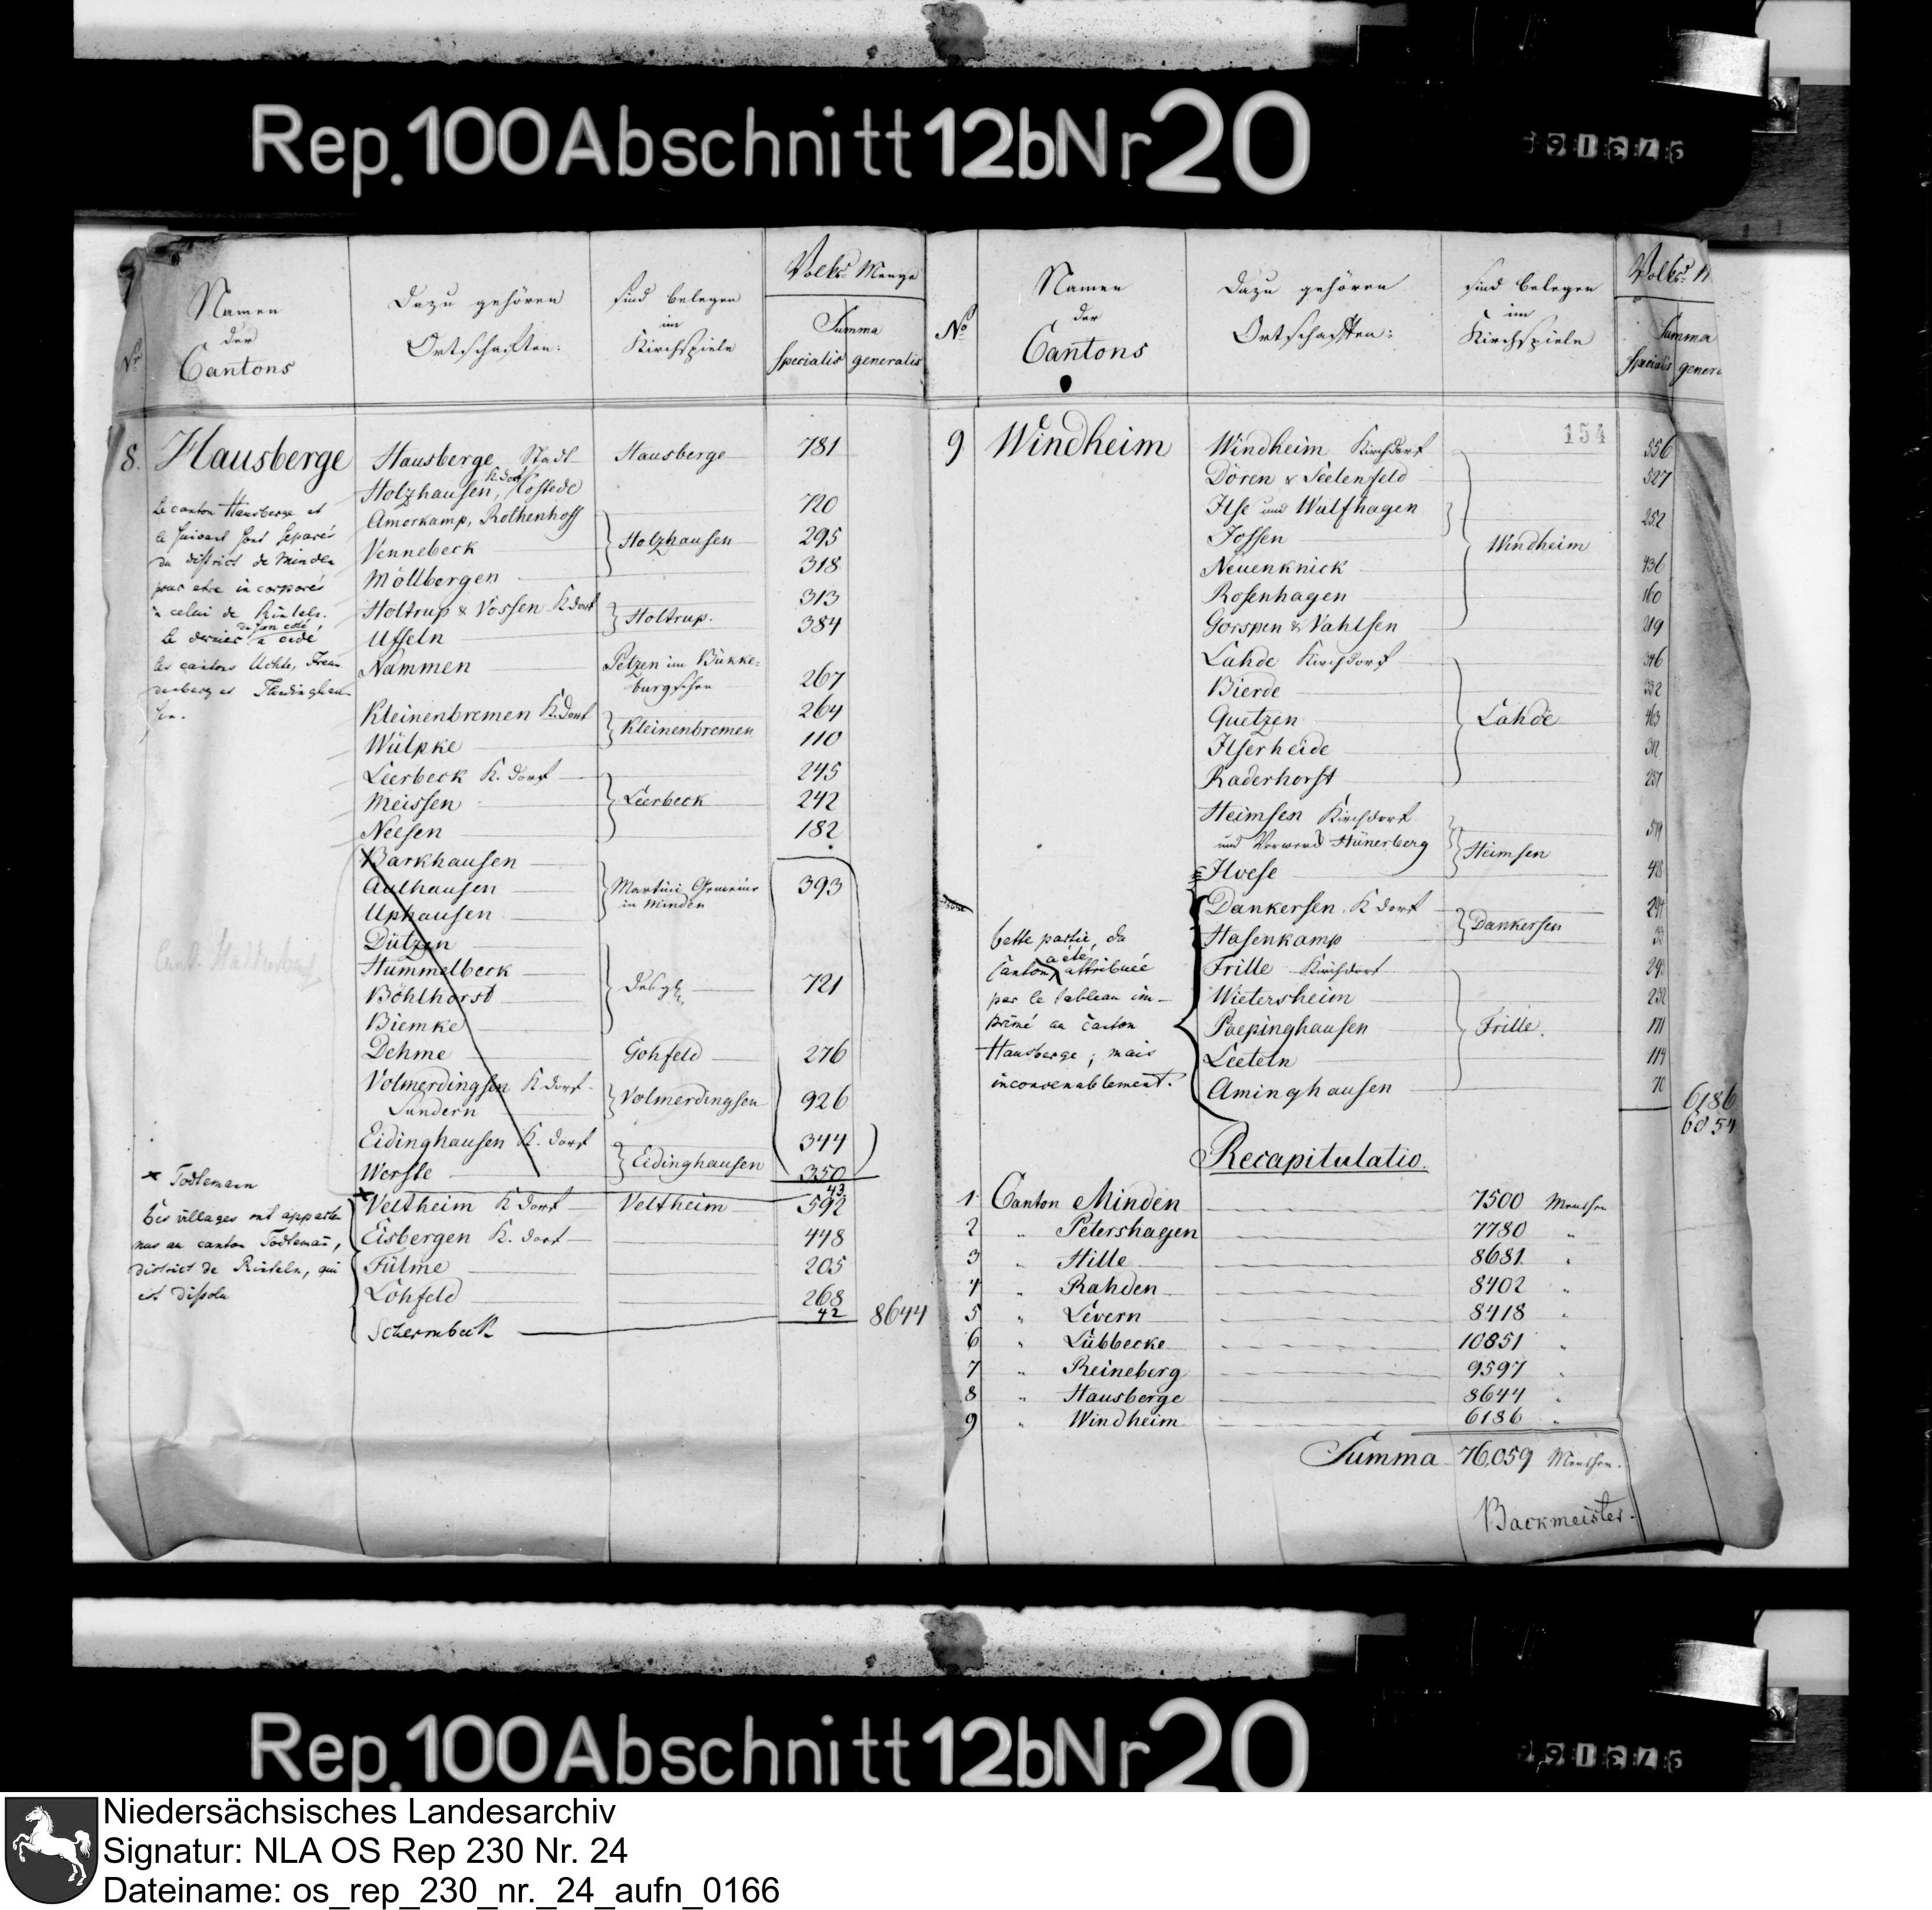 Rep. 100 Abschnitt 12b Nr 20
Nr
Namen
der
Cantons
Dazu gehören
Ortschaften:
sind belegen
im
Kirchspiele
Volks Menge
Summa
specialis generalis
8. Hausberge
Le canton Hausberge et
le suivant sont separés
du district de Minden
pour etre incorporés
à celui de Rinteln.
Le dernier de son coté a cedé
les cantons Uchte, Freu-
denberg et Thedinghau-
sen.
Hausberge Stadt Hausberge 781
Holzhausen, K. dorf, Costede 720
Amorkamp, Rothenhoff
Vennebeck Holzhausen 295
Möllbergen 318
Holtrup & Vossen K dorf 313
Uffeln Holtrup. 384
Nammen Petzen im Bükke-
burgschen 267
Kleinenbremen K. Dorf 264
Wülpke Kleinenbremen 110
Leerbeck K. dorf 245
Meissen Leerbeck 242
Neesen 182
Barkhausen
Aulhausen Martini Gemeine 393
in Minden
Uphausen
Dützen
Hummelbeck
Böhlhorst desgl. 721
Biemke
Dehme Gohfeld 276
Volmerdingsen K dorf
Sundern Volmerdingsen 926
Eidinghausen K. dorf 344
Werste Eidinghausen 350
× Todtemann 43
Veltheim K dorf Veltheim 592
Eisbergen K. dorf 448
Fülme 205
Lohfeld 268
Schermbeck 42 8644
Ces villages ont apparte-
nus au canton Todteman,
district de Rinteln, qui
est dissolu
No
Namen
der
Cantons
Dazu gehören
Ortschaften:
sind belegen
im
Kirchspiele
Volks M
Summa
specialis genera
154
9 Windheim
Windheim Kirchdorf 556
Dören & Seelenfeld 527
Ilse und Wulfhagen 252
Jossen Windheim
Neuenknick 436
Rosenhagen 160
Gorspen & Vahlsen 219
Lahde Kirchdorf 346
Bierde 332
Quetzen Lahde 463
Ilserheide
Raderhorst
Heimsen Kirchdorf
und Vorwerk Hünerberg Heimsen
Ilvese
Dankersen K dorf
Hasenkamp Dankersen
Frille Kirchdorf
Wietersheim 232
Paepinghausen Frille. 171
Leeteln 119
Aminghausen 70
6186
6054
Cette partie, du
Canton a été attribuée
par le tableau im-
primé au canton
Hausberge; mais
inconvenablement.
Recapitulatio.
1 Canton Minden 7500 Menschen
2 " Petershagen 7780 "
3 " Hille 8681 "
4 " Rahden 8402 "
5 " Levern 8418 "
6 " Lübbecke 10851 "
7 " Reineberg 9597 "
8 " Hausberge 8644 "
9 " Windheim 6186 "
Summa 76,059 Menschen.
Backmeister.
Rep. 100 Abschnitt 12b Nr 20
Niedersächsisches Landesarchiv
Signatur: NLA OS Rep 230 Nr. 24
Dateiname: os_rep_230_nr._24_aufn_0166